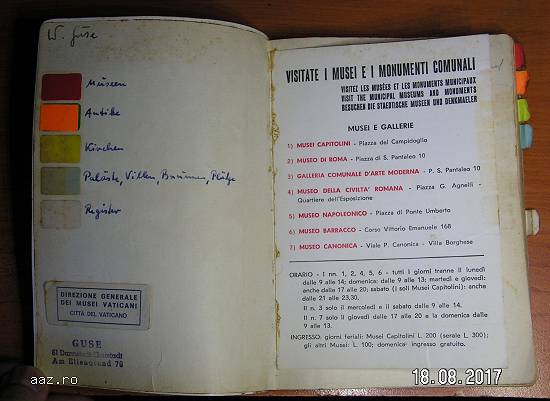 W. Guse
Museen
Antike
Kirchen
Paläste, Villen, Brunnen, Plätze
Register
DIREZIONE GENERALE
DEI MUSEI VATICANI
CITTÀ DEL VATICANO
GUSE
61 Darmstadt
Am Elfengrund 70
aaz.ro
VISITATE I MUSEI E I MONUMENTI COMUNALI
VISITEZ LES MUSÉES ET LES MONUMENTS MUNICIPAUX
VISIT THE MUNICIPAL MUSEUMS AND MONUMENTS
BESUCHEN DIE STAEDTISCHE MUSEEN UND DENKMAELER
MUSEI E GALLERIE
1) MUSEI CAPITOLINI - Piazza del Campidoglio
2) MUSEO DI ROMA - Piazza di S. Pantaleo 10
3) GALLERIA COMUNALE D'ARTE MODERNA - P. S. Pantaleo 10
4) MUSEO DELLA CIVILTA' ROMANA - Piazza G. Agnelli -
Quartiere dell'Esposizione
5) MUSEO NAPOLEONICO - Piazza di Ponte Umberto
6) MUSEO BARRACCO - Corso Vittorio Emanuele 168
7) MUSEO CANONICA - Viale P. Canonica - Villa Borghese
ORARIO - I nn. 1, 2, 4, 5, 6 - tutti i giorni tranne il lunedì
dalle 9 alle 14; domenica: dalle 9 alle 13; martedì e giovedì:
anche dalle 17 alle 20; sabato (i soli Musei Capitolini): anche
dalle 21 alle 23,30.
Il n. 3 solo il mercoledì e il sabato dalle 9 alle 14.
Il n. 7 solo il giovedì dalle 17 alle 20 e la domenica dalle
9 alle 13.
INGRESSO: giorni feriali: Musei Capitolini L. 200 (serale L. 300);
gli altri Musei: L. 100; domenica: ingresso gratuito.
18.08.2017